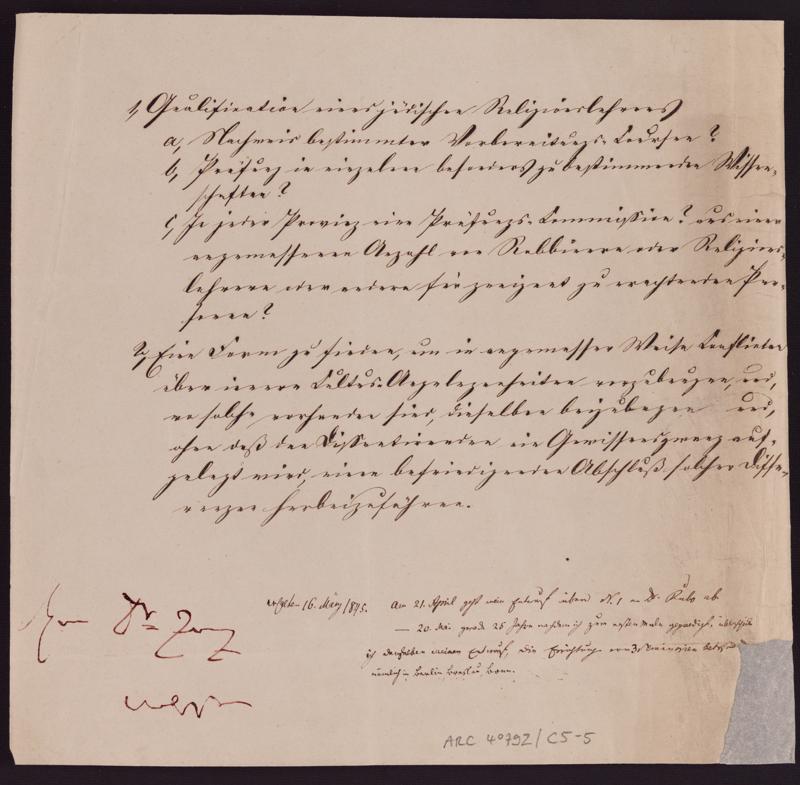 1, Qualification eines jüdischen Religionslehrers
a, Nachweis bestimmter Vorbereitungs-Course?
b, Prüfung in einzelnen besonders zu bestimmenden Wissen-
schaften?
c, In jeder Provinz eine Prüfungs-Commission? aus einer
angemessenen Anzahl von Rabbinern oder Religions-
lehrern oder andern für geeignet zu erachtenden Per-
sonen?
2, Eine Form zu finden, um in angemessner Weise Conflicten
über innere Cultus-Angelegenheiten vorzubeugen, und,
wo solche vorhanden sind, dieselben beizulegen und,
ohne daß den Dissentirenden ein Gewissenszwang auf-
gelegt wird, einen befriedigenden Abschluß solcher Diffe-
renzen herbeizuführen.
Herrn Dr. Zunz
16. März 1845. Am 21. April geht mein Entwurf über N. 1 an Dr. Rubo ab
— 20. Mai gerade 25 Jahre nachdem ich zum ersten Male gepredigt,
ich denselben meinen Entwurf, die Errichtung von 3 Seminarien
nämlich in Berlin, Breslau, Bonn.
ARC 4°792/C5-5